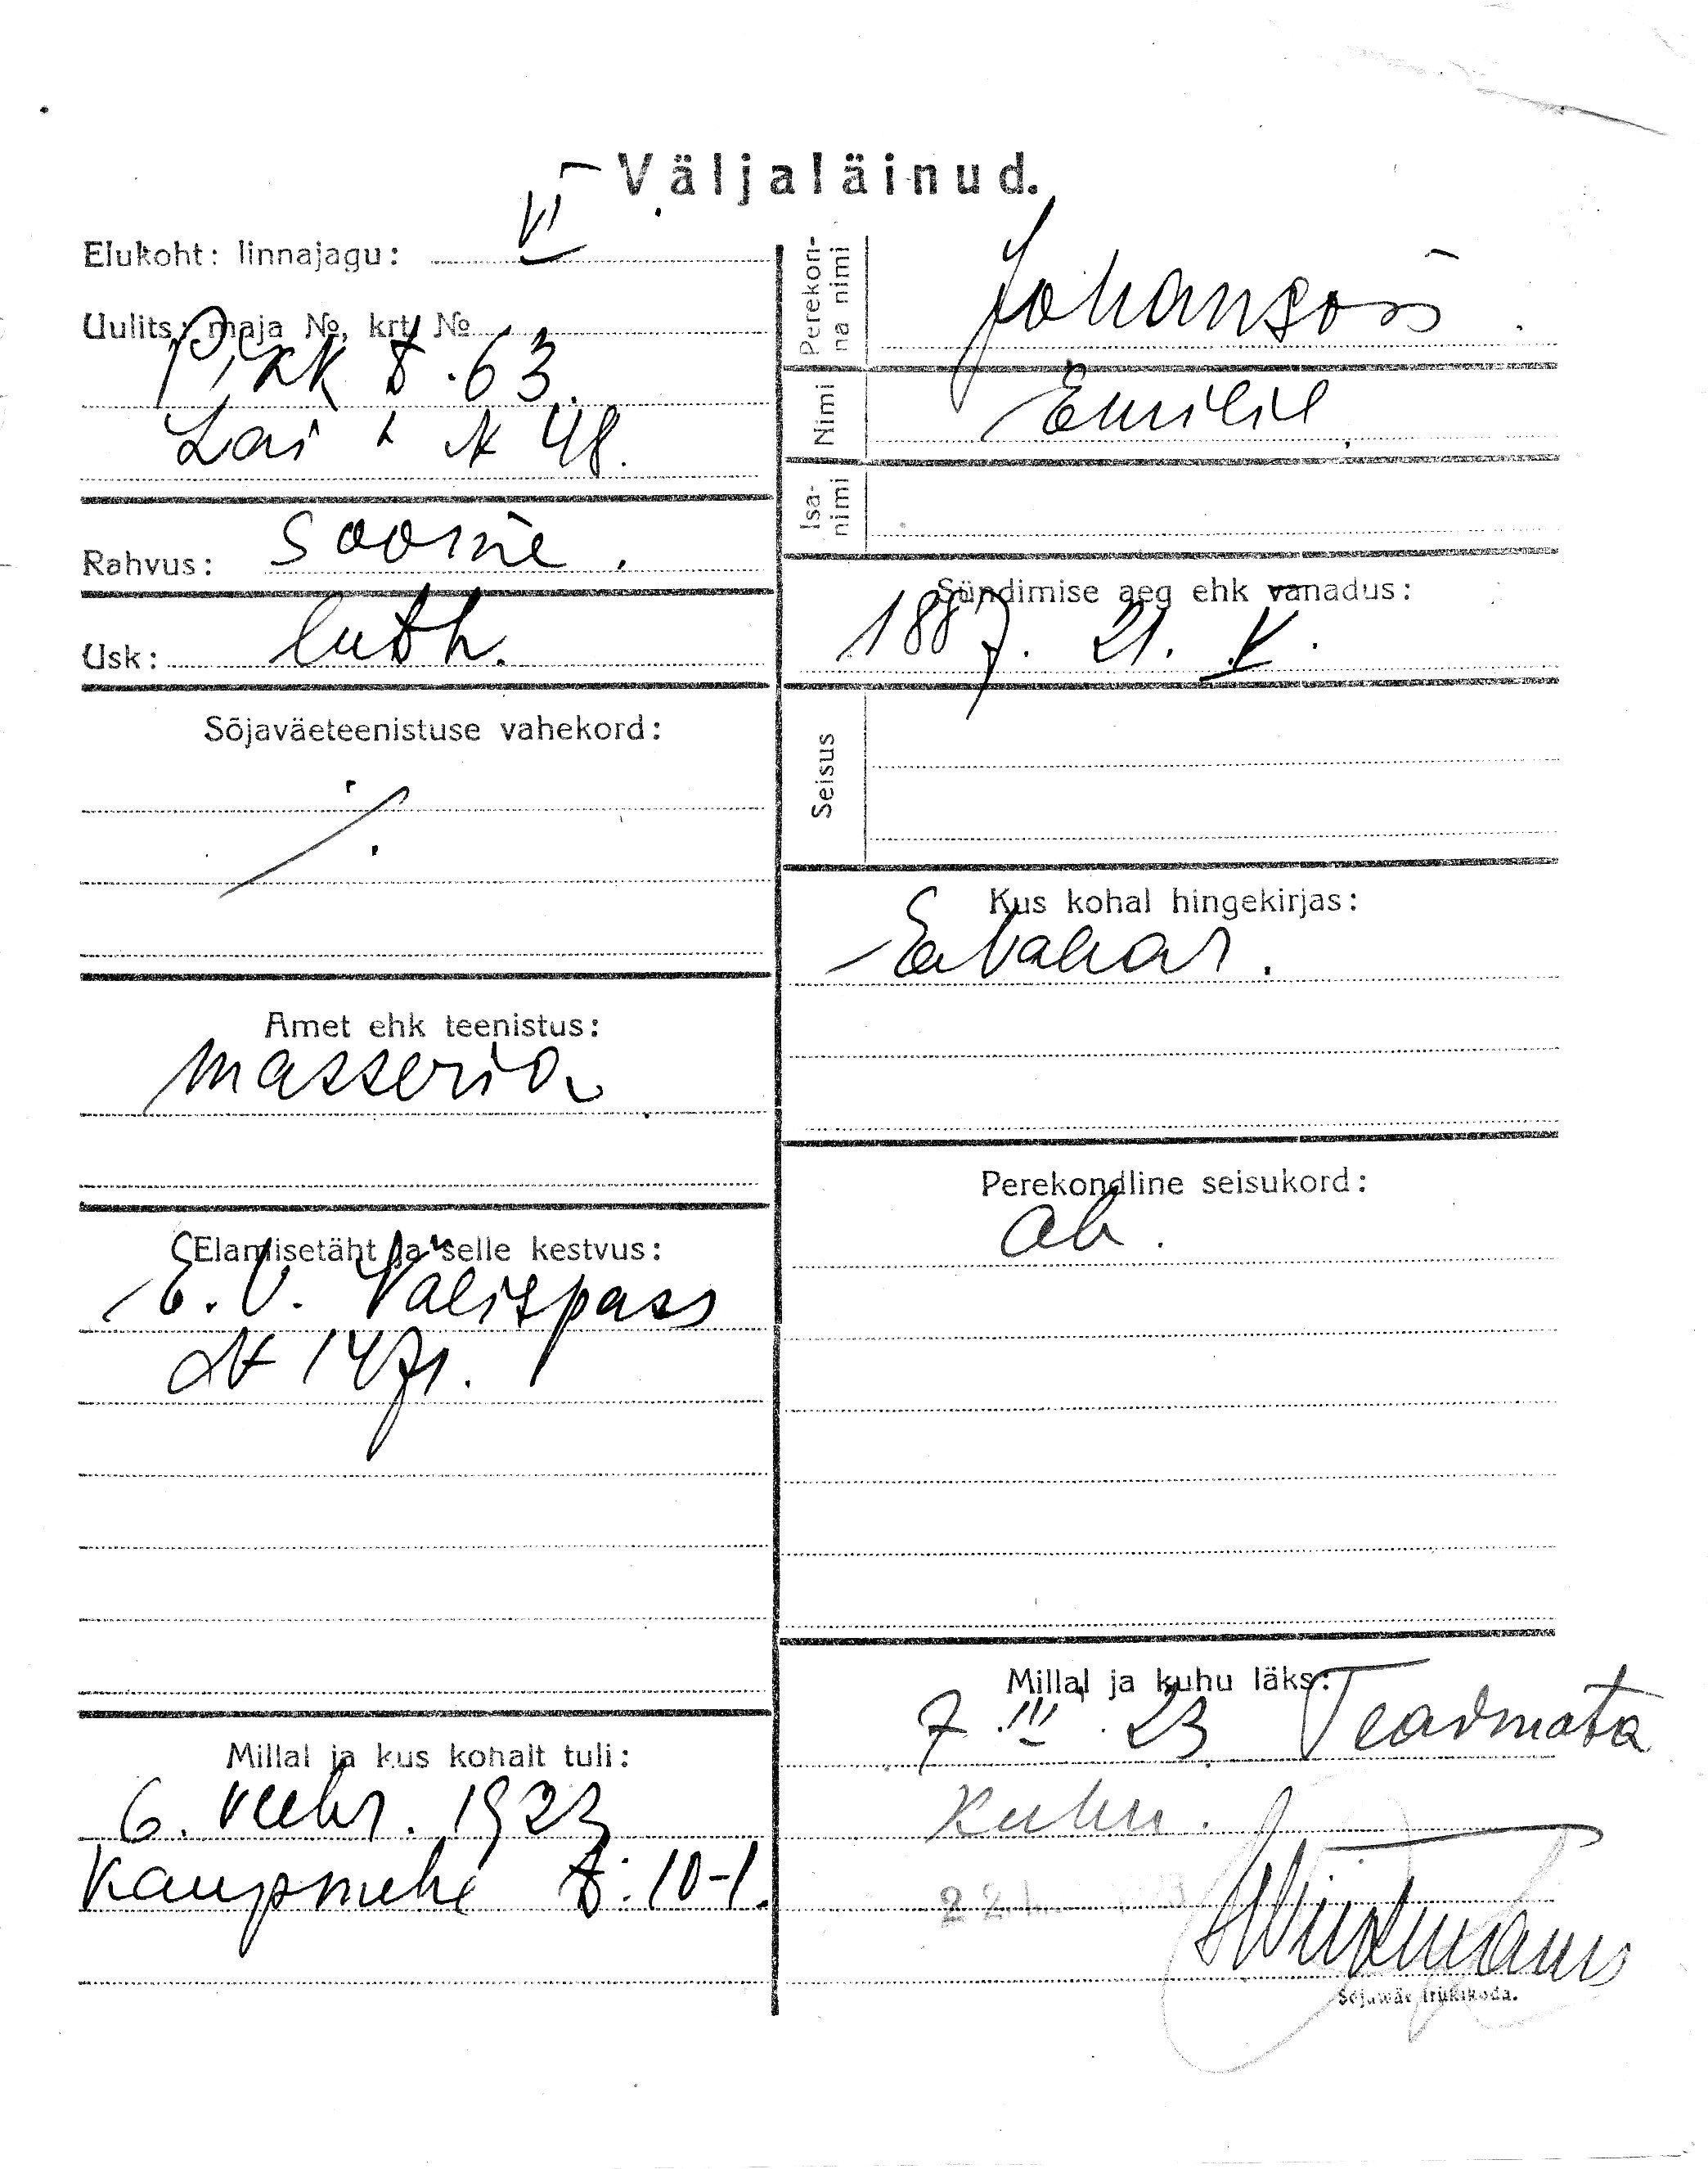 Väljaläinud.
Elukoht: linnajagu: VI
Uulits; maja No, krt. No
Pikk t. 63.
Lai t. № 48.
Rahvus: soome.
Usk: luth.
Sõjaväeteenistuse vahekord:
Amet ehk teenistus:
masseria
Elamisetäht ja selle kestvus:
E. V. Välispass
№ 1471.
Millal ja kus kohalt tuli:
6. veebr. 1923
Kaupmehe t: 10-1.
Perekon-
na nimi
Johanson
Nimi
Emilie
Isa-
nimi
Sündimise aeg ehk vanadus:
1887. 21. V.
Seisus
Kus kohal hingekirjas:
Perekondline seisukord:
ab.
Millal ja kuhu läks:
7. III. 23 Teadmata
kuhu.
Sõjawäe trükikoda.